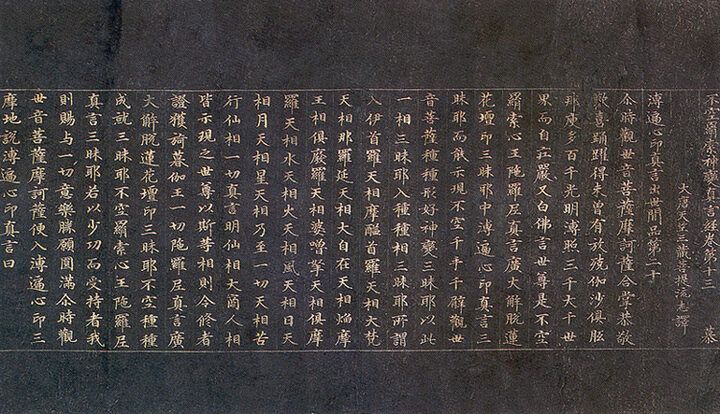 不空羂索神變真言經卷第十三 慕
大唐天竺三藏菩提流志譯
溥遍心印真言出世間品第二十
尒時觀世音菩薩摩訶薩合掌恭敬
歡喜踊躍得未曾有放殑伽沙俱胝
那庾多百千光明溥照三千大千世
界而自莊嚴又白佛言世尊是不空
羂索心王陁羅尼真言廣大解脫蓮
花壇印三昧耶中溥遍心印真言三
昧耶而能示現不空千手千臂觀世
音菩薩種種形好神變三昧耶以此
一相三昧耶入種種相三昧耶所謂
入伊首羅天相摩醯首羅天相大梵
天相那羅延天相大自在天相焰摩
王相俱廢羅天相婆嚕拏天相俱摩
羅天相水天相火天相風天相日天
相月天相星天相乃至一切天相苦
行仙相一切真言明仙相大人相
皆示現之世尊以斯等相則令修者
證獲猗暮伽王一切陁羅尼真言廣
大解脫蓮花壇印三昧耶不空種種
成就三昧耶不空羂索心王陁羅尼
真言三昧耶若以少功而受持者我
則賜与一切意樂勝願圓滿尒時觀
世音菩薩摩訶薩便入溥遍心印三
摩地說溥遍心印真言曰